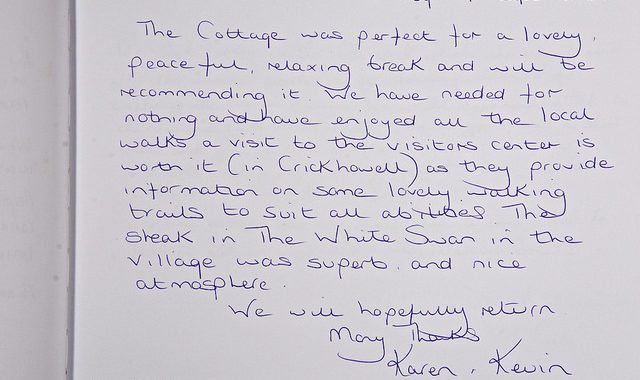 The Cottage was perfect for a lovely,
peaceful, relaxing break and will be
recommending it. We have needed for
nothing and have enjoyed all the local
walks a visit to the visitors center is
worth it (in Crickhowell) as they provide
information on some lovely walking
trails to suit all abilities The
steak in The White Swan in the
village was superb. and nice
atmosphere.
We will hopefully return
Many Thanks
Karen, Kevin